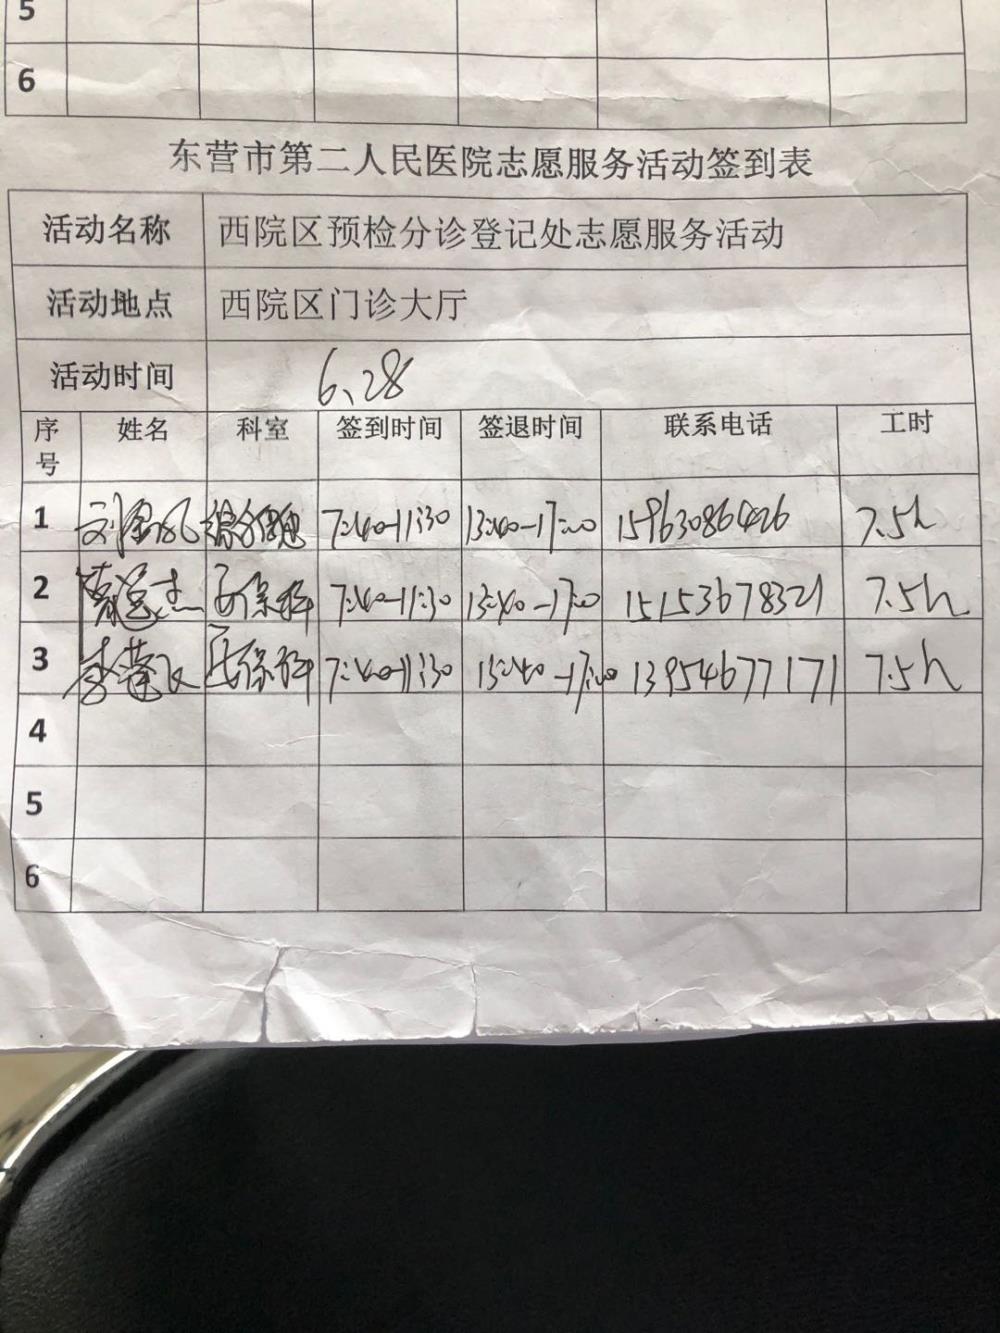 5
6
东营市第二人民医院志愿服务活动签到表
活动名称 西院区预检分诊登记处志愿服务活动
活动地点 西院区门诊大厅
活动时间 6.28
序号 姓名 科室 签到时间 签退时间 联系电话 工时
1 7:40-11:30 13:40-17:00 15963086426 7.5h
2 保科 7:40-11:30 13:40-17:00 15153678321 7.5h
3 李莲 医保科 7:40-11:30 13:40-17:00 13954677171 7.5h
4
5
6